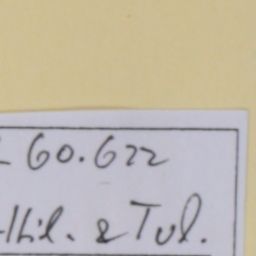 60.622
Hil. & Tul.